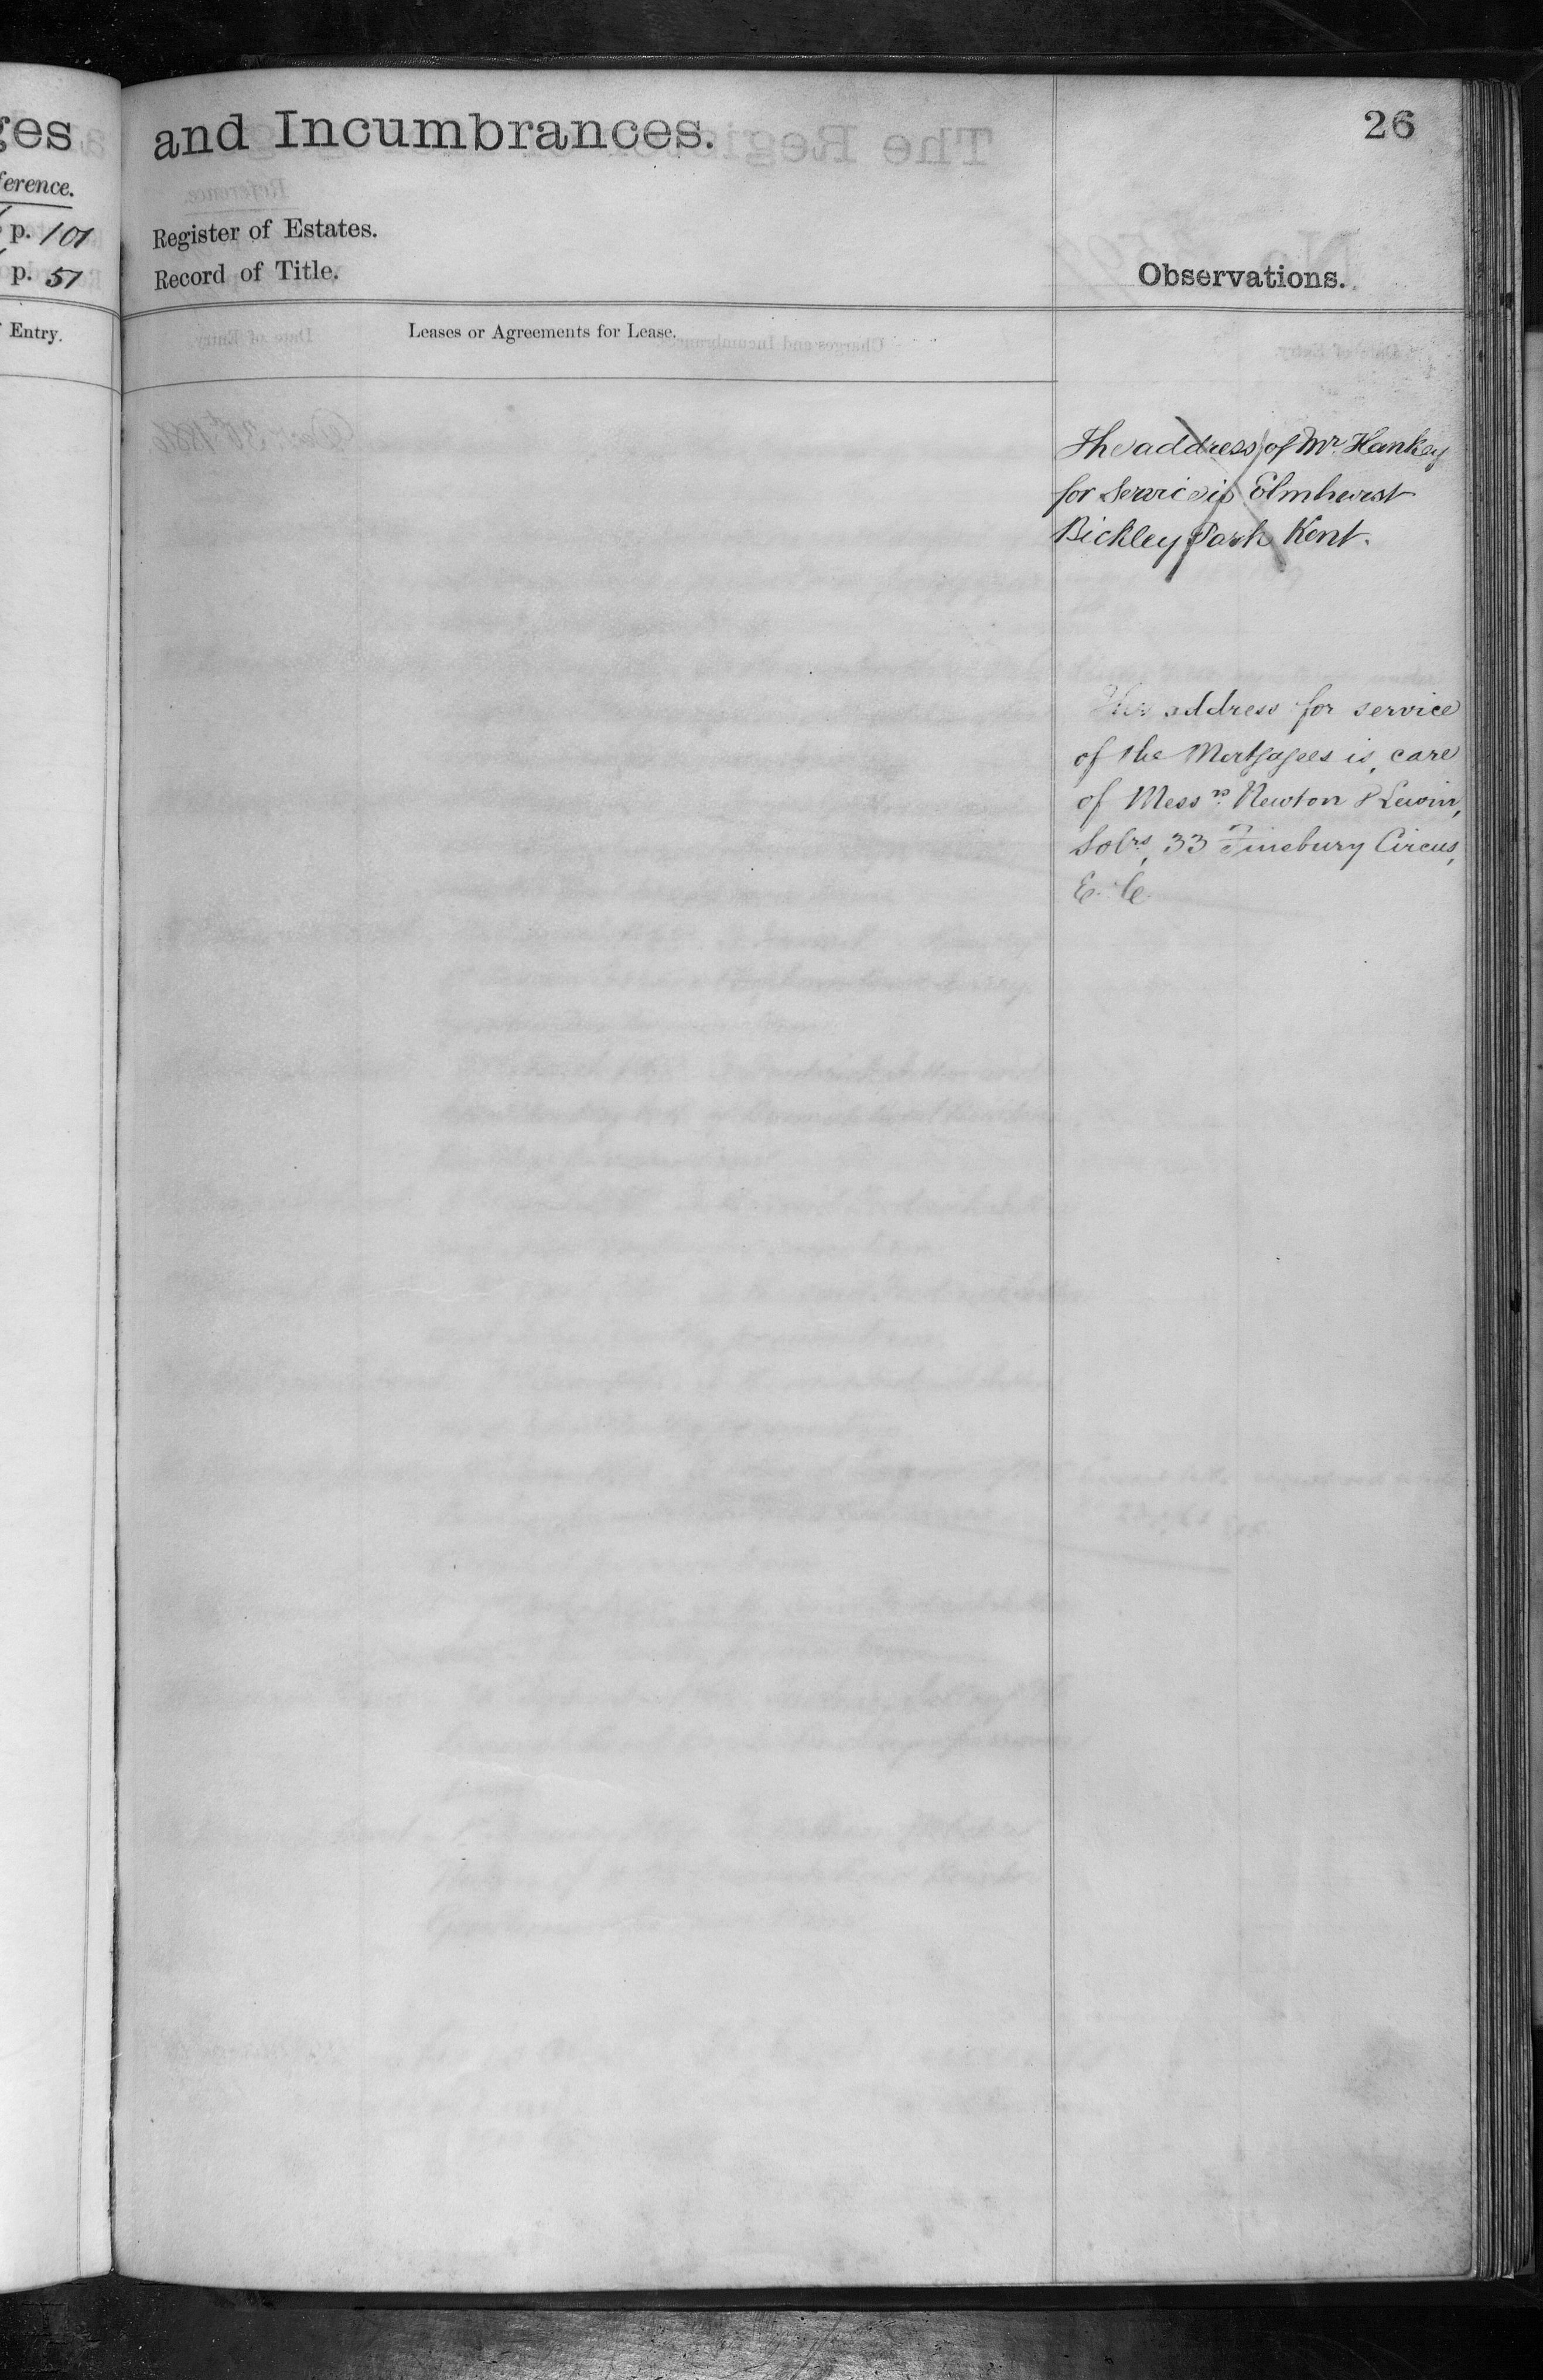 ges
ference.
p. 101
p. 51
Entry.
and Incumbrances.
26
Register of Estates.
Record of Title.
Observations.
Leases or Agreements for Lease.
The address of Mr. Hankey
for Service is Elmhurst
Bickley Park Kent.
The address for service
of the Mortgagees is, care
of Messrs. Newton & Lewin,
Solrs, 33 Finsbury Circus,
E. C.